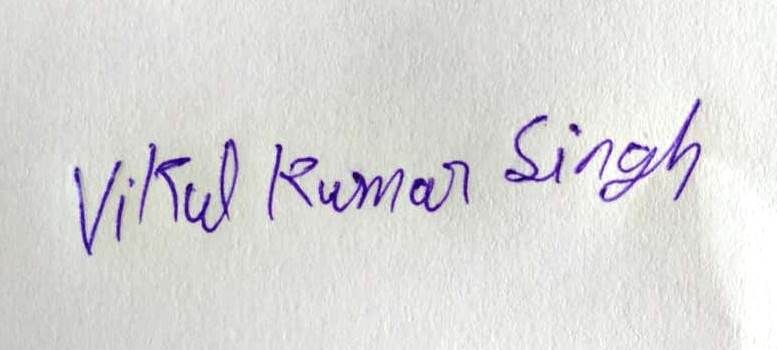 Vikul Kumar Singh